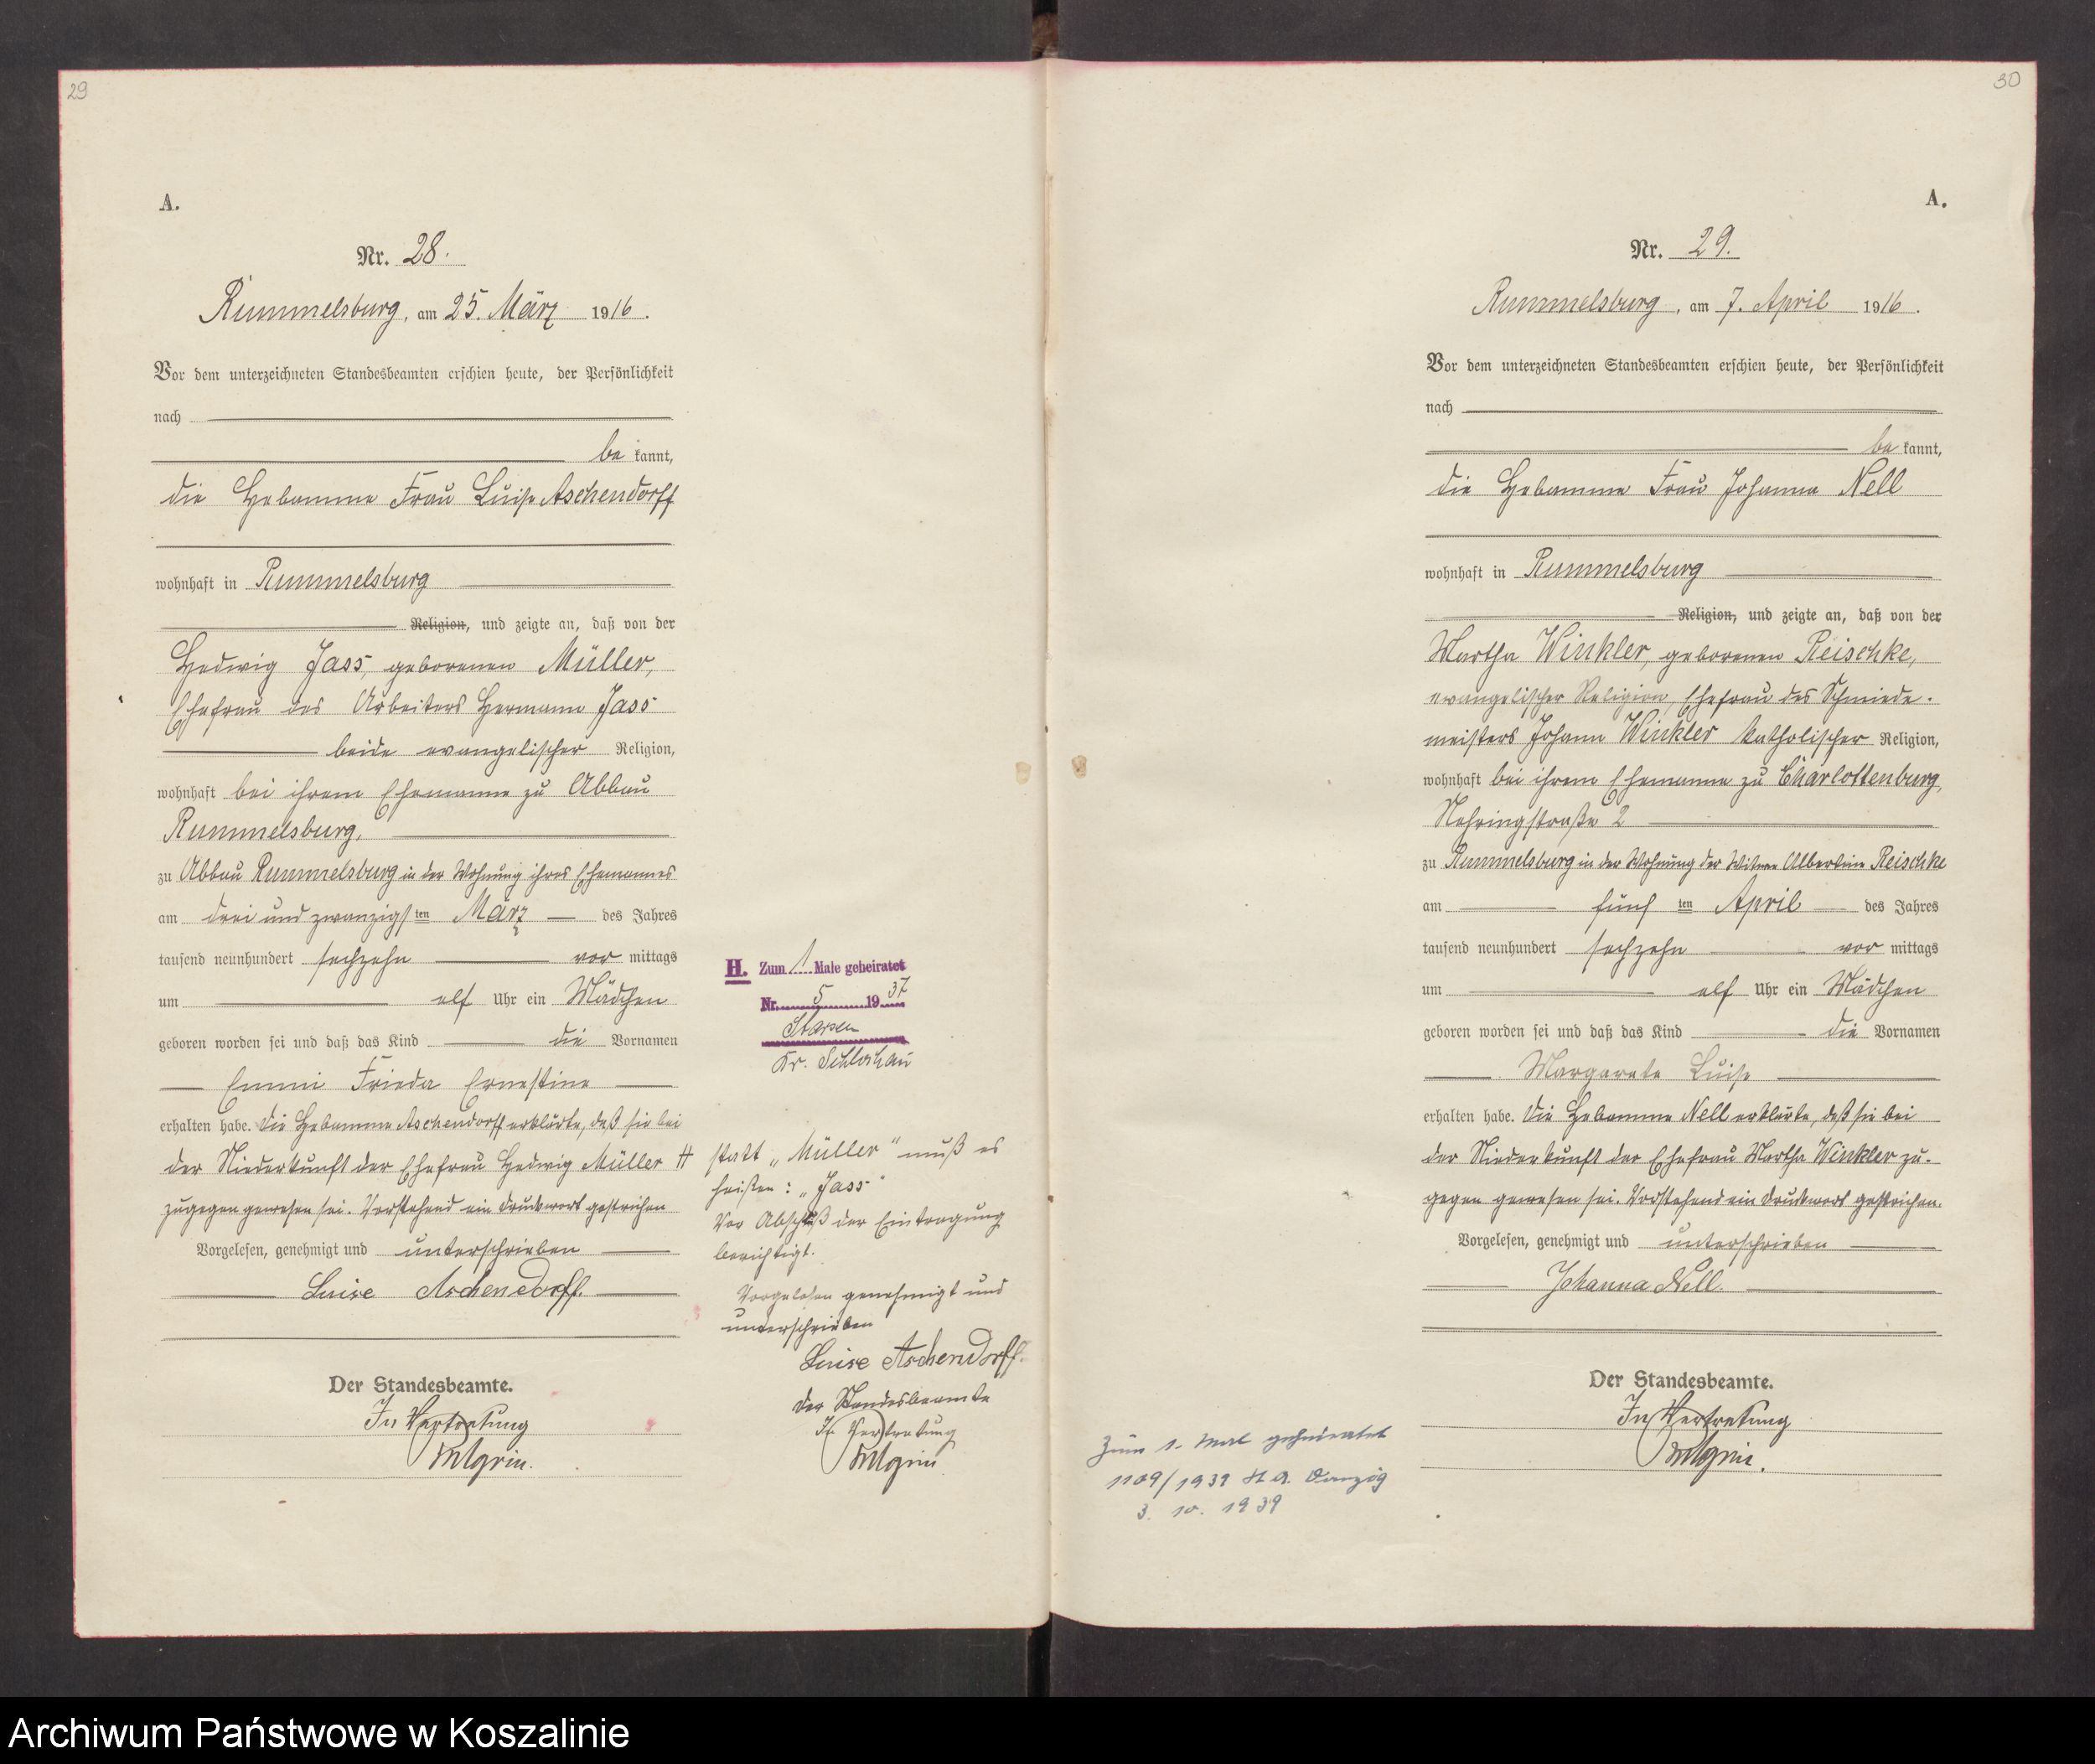 29
A.
Nr. 28.
Rummelsburg, am 25. März 1916.
Vor dem unterzeichneten Standesbeamten erschien heute, der Persönlichkeit
nach
be kannt,
die Hebamme Frau Luise Aschendorff
wohnhaft in Rummelsburg
Religion, und zeigte an, daß von der
Hedwig Jass, geborenen Müller,
Ehefrau des Arbeiters Hermann Jass
beide evangelischer Religion,
wohnhaft bei ihrem Ehemanne zu Abbau
Rummelsburg,
zu Abbau Rummelsburg in der Wohnung ihres Ehemannes
am drei und zwanzigsten März des Jahres
tausend neunhundert sechzehn vor mittags
um elf Uhr ein Mädchen
geboren worden sei und daß das Kind die Vornamen
Emmi Frieda Ernestine
erhalten habe. Die Hebamme Aschendorff erklärte, daß sie bei
der Niederkunft der Ehefrau Hedwig Müller #
zugegen gewesen sei. Vorstehend ein Druckwort gestrichen
Vorgelesen, genehmigt und unterschrieben
Luise Aschendorff.
Der Standesbeamte.
In Vertretung
H. Zum 1 Male geheiratet
Nr. 5 1937
Kr. Schlochau
statt „Müller" muß es
heißen: „Jass"
Vor Abschluß der Eintragung
berichtigt.
Vorgelesen genehmigt und
unterschrieben
Luise Aschendorff.
Der Standesbeamte
In Vertretung
30
A.
Nr. 29.
Rummelsburg, am 7. April 1916.
Vor dem unterzeichneten Standesbeamten erschien heute, der Persönlichkeit
nach
be kannt,
die Hebamme Frau Johanna Nell
wohnhaft in Rummelsburg
Religion, und zeigte an, daß von der
Martha Winkler, geborenen Reischke,
evangelischer Religion, Ehefrau des Schmiede-
meisters Johann Winkler katholischer Religion,
wohnhaft bei ihrem Ehemanne zu Charlottenburg,
Nehringstraße 2
zu Rummelsburg in der Wohnung der Witwe Albertine Reischke
am fünften April des Jahres
tausend neunhundert sechzehn vor mittags
um elf Uhr ein Mädchen
geboren worden sei und daß das Kind die Vornamen
Margarete Luise
erhalten habe. Die Hebamme Nell erklärte, daß sie bei
der Niederkunft der Ehefrau Martha Winkler zu-
gegen gewesen sei. Vorstehend ein Druckwort gestrichen.
Vorgelesen, genehmigt und unterschrieben
Johanna Nell.
Der Standesbeamte.
In Vertretung
Zum 1. Mal geheiratet
1109/1939 St. A. Danzig
3. 10. 1939
Archiwum Państwowe w Koszalinie